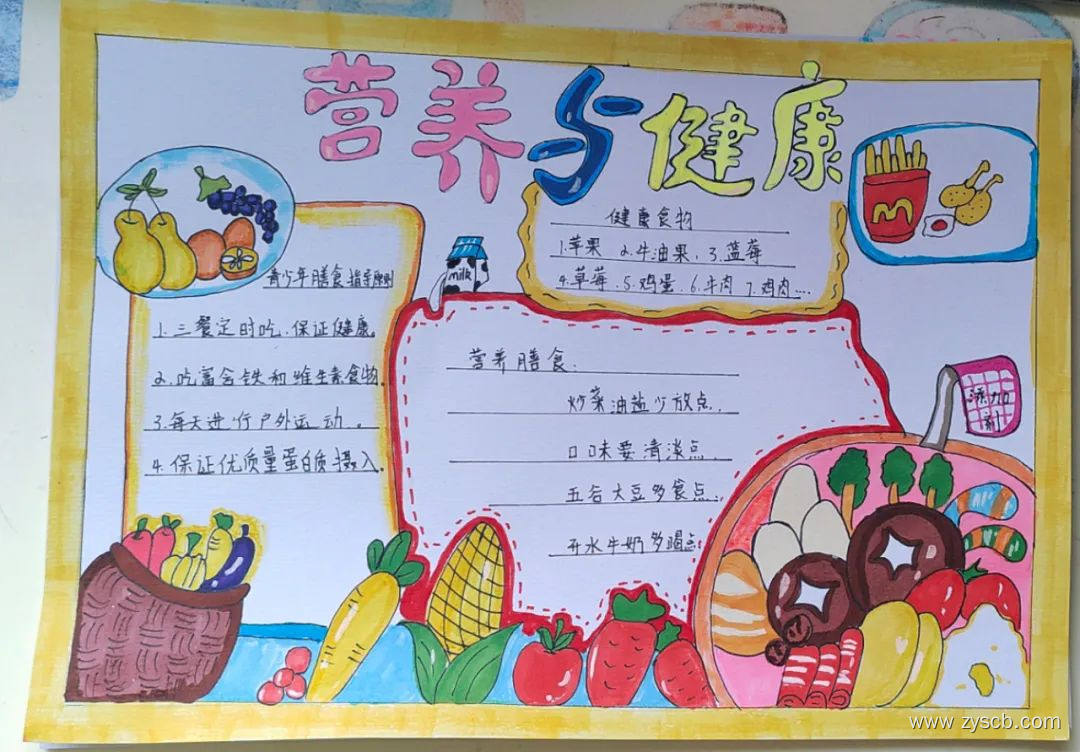 营养与健康
健康食物
1.苹果 2.牛油果,3.蓝莓
4.草莓.5.鸡蛋.6.牛肉 7.鸡肉....
milk
青少年膳食指导原则
1.三餐定时吃.保证健康.
2.吃富含铁和维生素食物.
3.每天进行户外运动.
4.保证优质量蛋白质摄入.
营养膳食:
炒菜油盐少放点.
口味要清淡点.
五谷大豆多食点.
开水牛奶多喝点.
添加
剂
www.zyscb.com